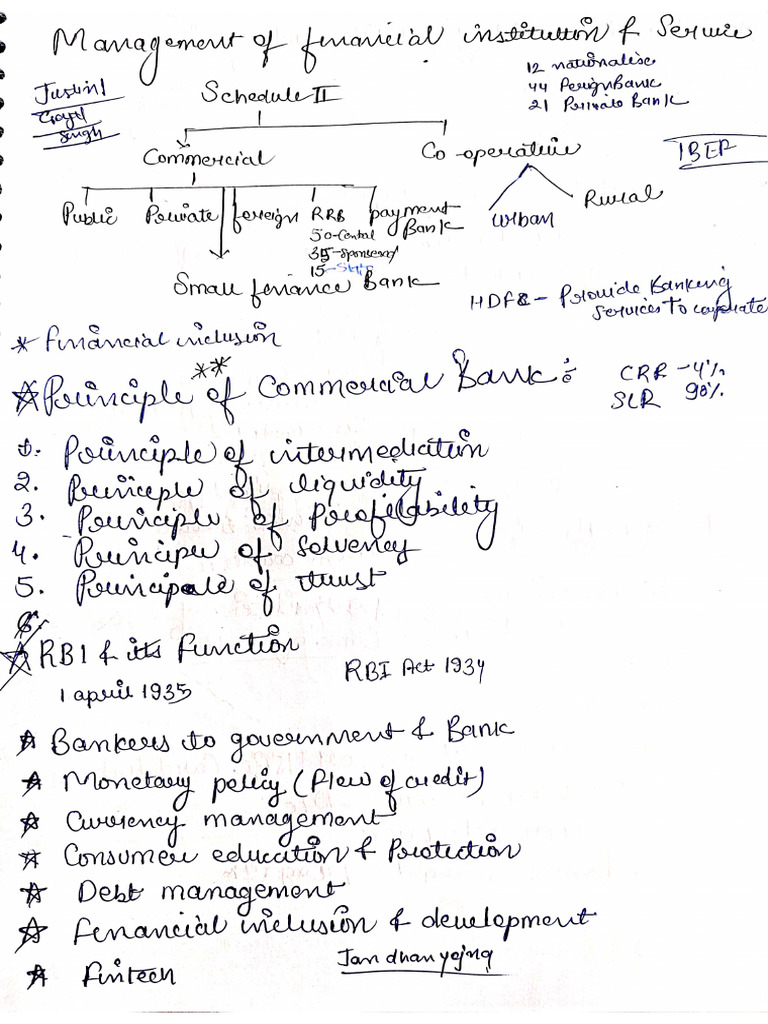 Management of financial institution & Service
12 nationalise
44 Foreign Bank
21 Private Bank
Justin1
Singh
Schedule II
Commercial
Co operative
IBEF
Public Private foreign RRB payment Bank
50-Cental
35-Sponserd
15-State
urban
Rural
Small finance Bank
HDFC - Provide Banking
Services to coporate
* Financial inclusion
**
Principle of Commercial Bank :
CRR - 4%
SLR 98%
1. Principle of intermediation
2. Principle of liquidity
3. Principle of profitability
4. Principle of Solvency
5. Principale of trust
6.
RBI & its function
1 april 1935
RBI Act 1934
Bankers to government & Bank
Monetary policy (Flow of credit)
Currency management
Consumer education & Protection
Debt management
Financial inclusion & development
Jan dhan yojna
Fintech